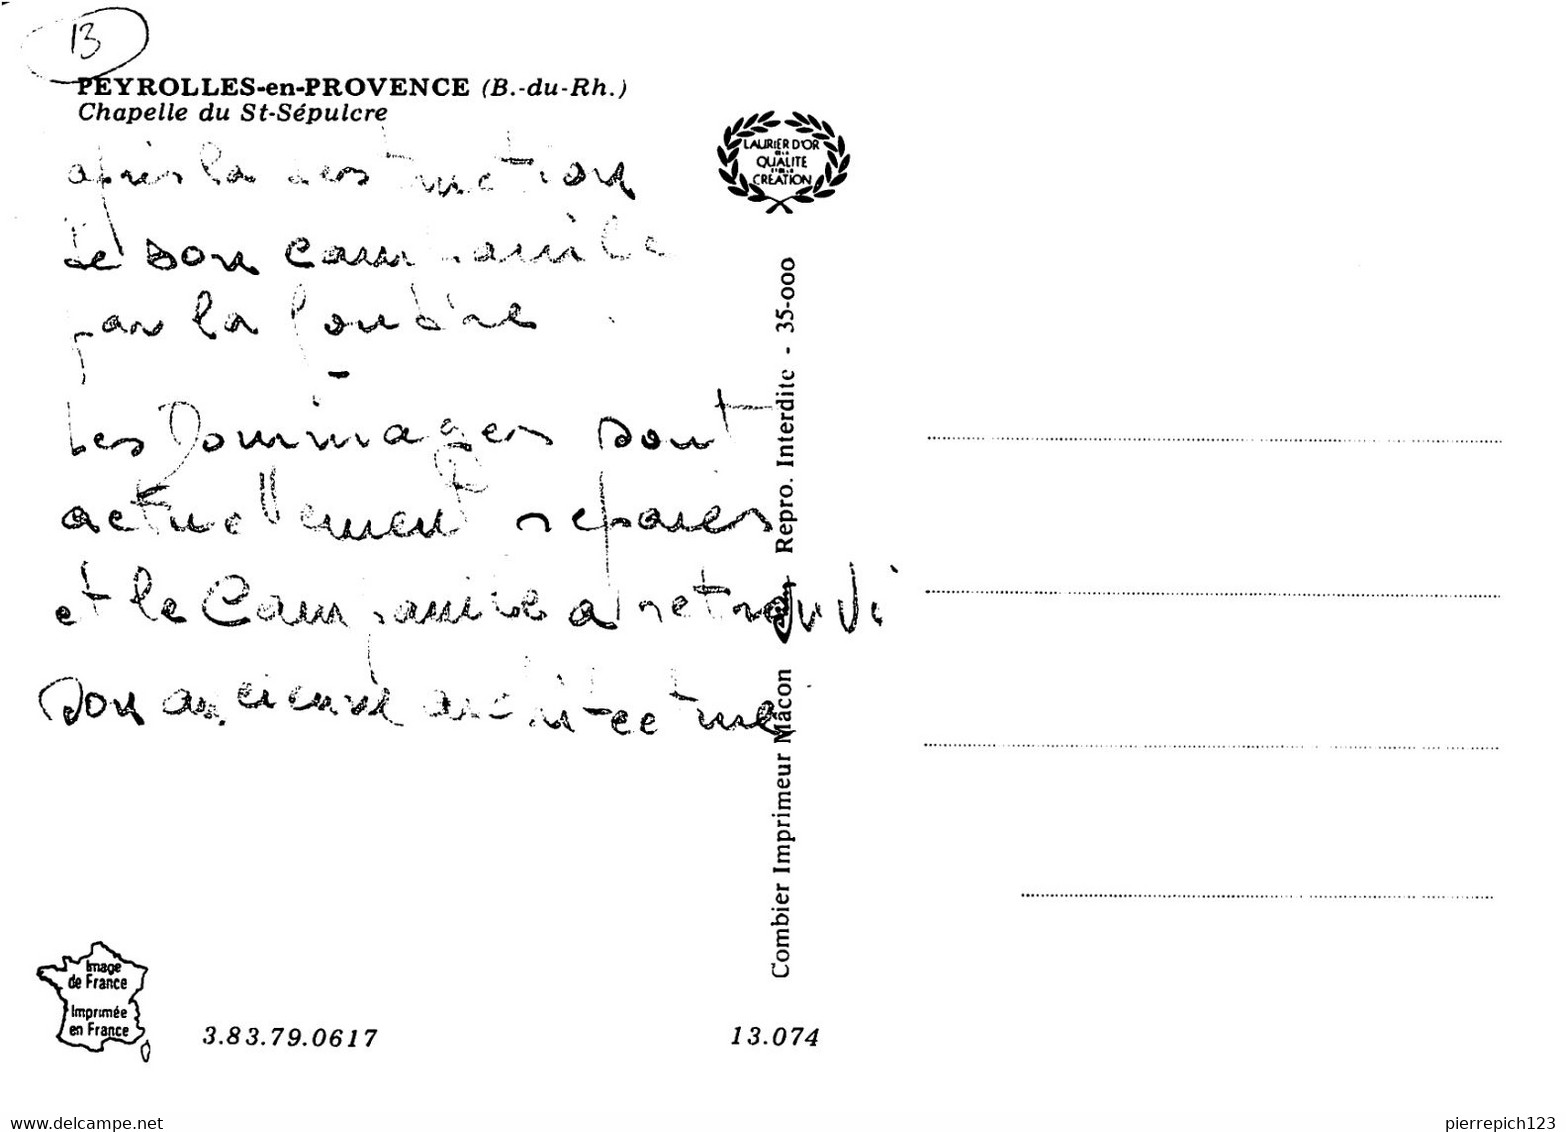 13
PEYROLLES-en-PROVENCE (B.-du-Rh.)
Chapelle du St-Sépulcre
après la destruction
de son campanile
par la foudre
-
Les Dommages sont
actuellement reparés
et le Campanile a retrouvé
son ancienne architecture
LAURIER D'OR
DE LA
QUALITE
ET DE LA
CREATION
Combier Imprimeur Mâcon
Repro. Interdite - 35-000
Image
de France
Imprimée
en France
3.83.79.0617
13.074
www.delcampe.net
pierrepich123